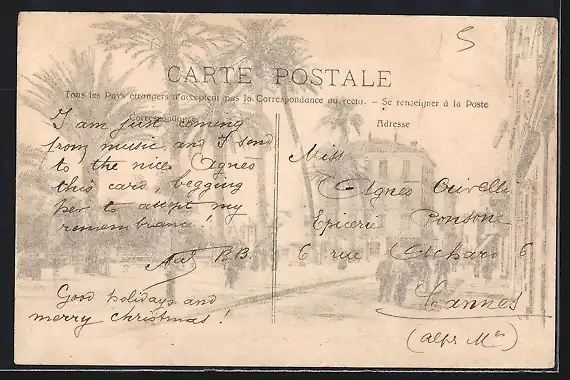 5
CARTE POSTALE
Tous les Pays étrangers n'acceptent pas la Correspondance au recto. - Se renseigner à la Poste
Correspondance
Adresse
I am just coming
from music, and I send
to the nice Agnes
this card, begging
her to accept my
remembrance!
B.B.
Good holidays and
merry Christmas!
Miss
Agnès Crivelli
Epicerie Ponsone
6 rue 6
Cannes
(alpes Mes)